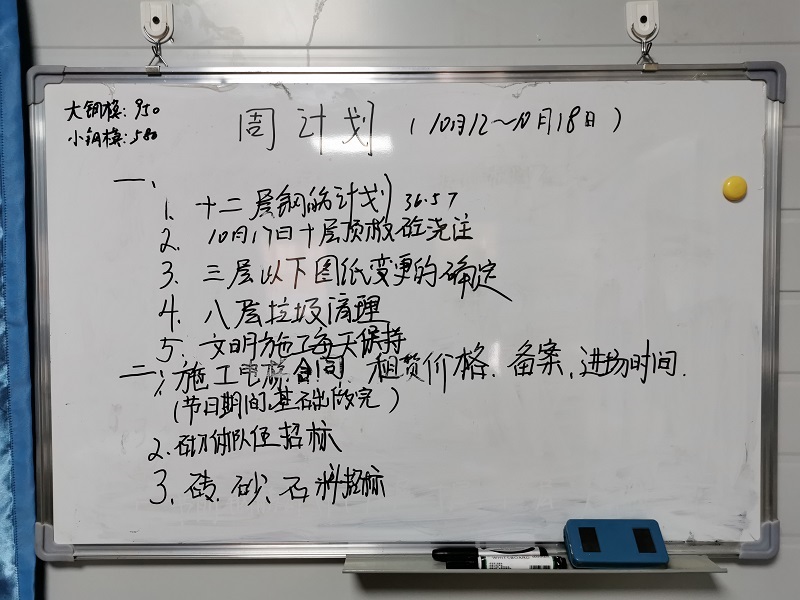 大钢模：950
小钢模：580
周计划（10月12～10月18日）
一、
1. 十二层钢筋计划 36.57
2. 10月17日十层顶板砼浇注
3. 三层以下图纸变更的确定
4. 八层垃圾清理
5. 文明施工每天保持
二、1、施工电梯合同、租赁价格、备案、进场时间.
（节日期间，基础做完）
2. 砌体队伍招标
3、砖、砂、石料招标
WHITEBOARD